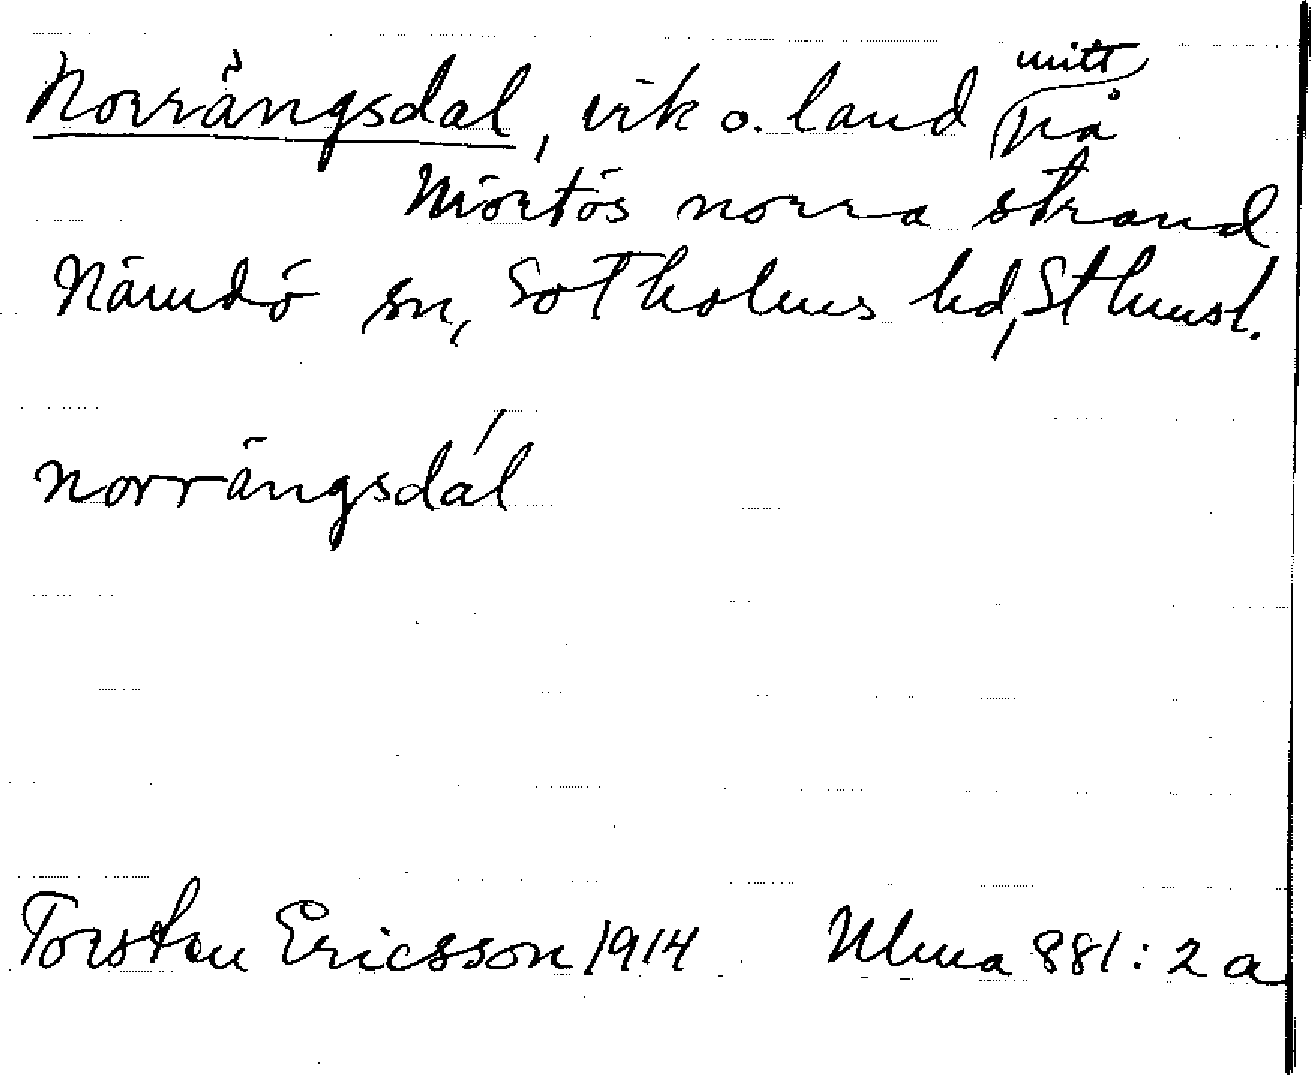 Norrängsdal, vik o. land mitt på
Mörtös norra strand
Nämdö sn, Sotholms hd, Sthmsl.
norrängsdál
Torsten Ericsson 1914 Ulma 881:2a